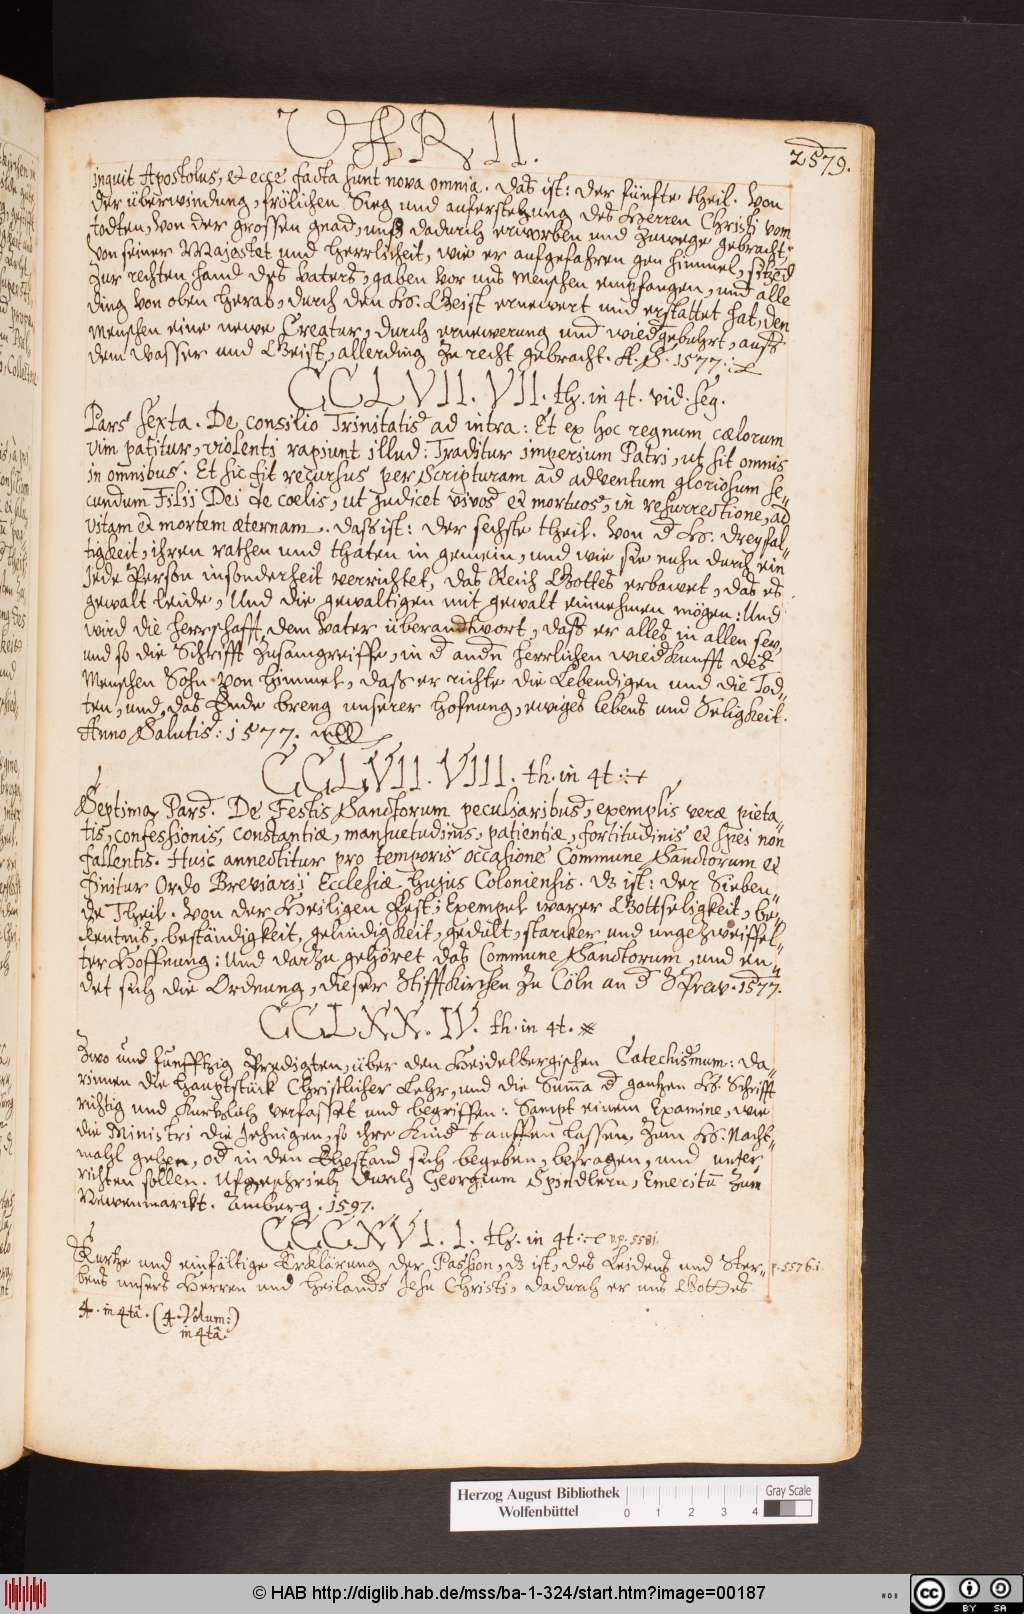 VAR II.
2579.
inquit Apostolus, et ecce facta sunt nova omnia. Das ist: Der fünfte theil. Von
der überwindung, frölichen Sieg und auferstehung des Herren Christi vom
todten, Von der grossen gnad, uns dadurch erworben und zuwege gebracht,
Von seiner Majestet und Herrlicheit, wie er aufgefahren gen himmel, sitzend
zur rechten hand des Vaters, gaben vor uns Menschen empfangen, und alle
ding Von oben herab, durch den H. Geist ernewert und erstattet hat, den
Menschen eine newe Creatur, durch ernewerung und wiedgebuhrt, auss
dem Wasser und Geist, allerding zu recht gebracht. A. S. 1577.
CCLVII. VII. th. in 4t. vid. seq.
Pars sexta. De consilio Trinitatis ad intra: Et ex hoc regnum cælorum
vim patitur, violenti rapiunt illud: Traditur imperium Patri, ut sit omnis
in omnibus. Et sic fit recursus per Scripturam ad adventum gloriosum se-
cundum Filii Dei de coelis, ut judicet vivos et mortuos, in resurrectione, ad
vitam et mortem æternam. Dass ist: Der sechste theil. Von d H. Dreyfal-
tigkeit, ihren rathen und thaten in gemein, und wie sie nuhn durch ein
jede Person insonderheit verrichtet, das Reich Gottes erbawet, das es
gewalt leide, Und die gewaltigen mit gewalt einnehmen mögen: Und
wird die herrschafft dem Vater überandtwort, dass er alles in allen sey,
und so die Schrifft zusamgreiffe, in d andn herrlichen wiedkunfft des
Menschen Sohn von himmel, dass er richte die Lebendigen und die Tod-
ten, und das Ende breng unserer hofnung, ewiges lebens und Seligkeit.
Anno Salutis: 1577.
CCLVII. VIII. th. in 4t.
Septima Pars. De Festis Sanctorum peculiaribus, exemplis veræ pieta-
tis, confessionis, constantiæ, mansuetudinis, patientiæ, fortitudinis et spei non
fallentis. Huic annectitur pro temporis occasione Commune Sanctorum et
finitur Ordo Breviarij Ecclesiæ hujus Coloniensis. Ds ist: Der Sieben-
de Theil. Von der Heiligen Fest, Exempel warer Gottseligkeit, be-
kentnis, beständigkeit, gelindigkeit, gedult, starcker und ungezweiffel-
ter Hoffnung: Und darzu gehöret das Commune Sanctorum, und en-
det sich die Ordnung, dieser Stifftkirchen zu Cöln an d Sprew. 1577.
CCLXX. IV. th. in 4t.
Zwo und funfftzig Predigten, über den Heidelbergischen Catechismum: Da-
rinnen die hauptstück Christlicher Lehr, und die Suma d gantzen H. Schrifft
richtig und kurtzlich verfasset und begriffen: Sampt einem Examine, wie
die Ministri die jehnigen, so ihre Kind tauffen lassen, zum H. Nacht-
mahl gehen, od in den Ehestand sich begeben, befragen, und unter
richten sollen. Ufgeschrieb durch Georgium Spindlern, Emeritu zum
Newenmarckt. Amberg. 1597.
CCCXVI. I. th. in 4t. p. 5581.
Kurtze und einfältige Erklärung der Passion, ds ist, des Leidens und Ster- p. 5576.
bens unsers Herren und Heilands Jesu Christi, dadurch er uns Gottes
4. in 4ta. (4. Volum:)
in 4ta
Herzog August Bibliothek
Wolfenbüttel
0 1 2 3 4
Gray Scale
© HAB http://diglib.hab.de/mss/ba-1-324/start.htm?image=00187
cc BY SA